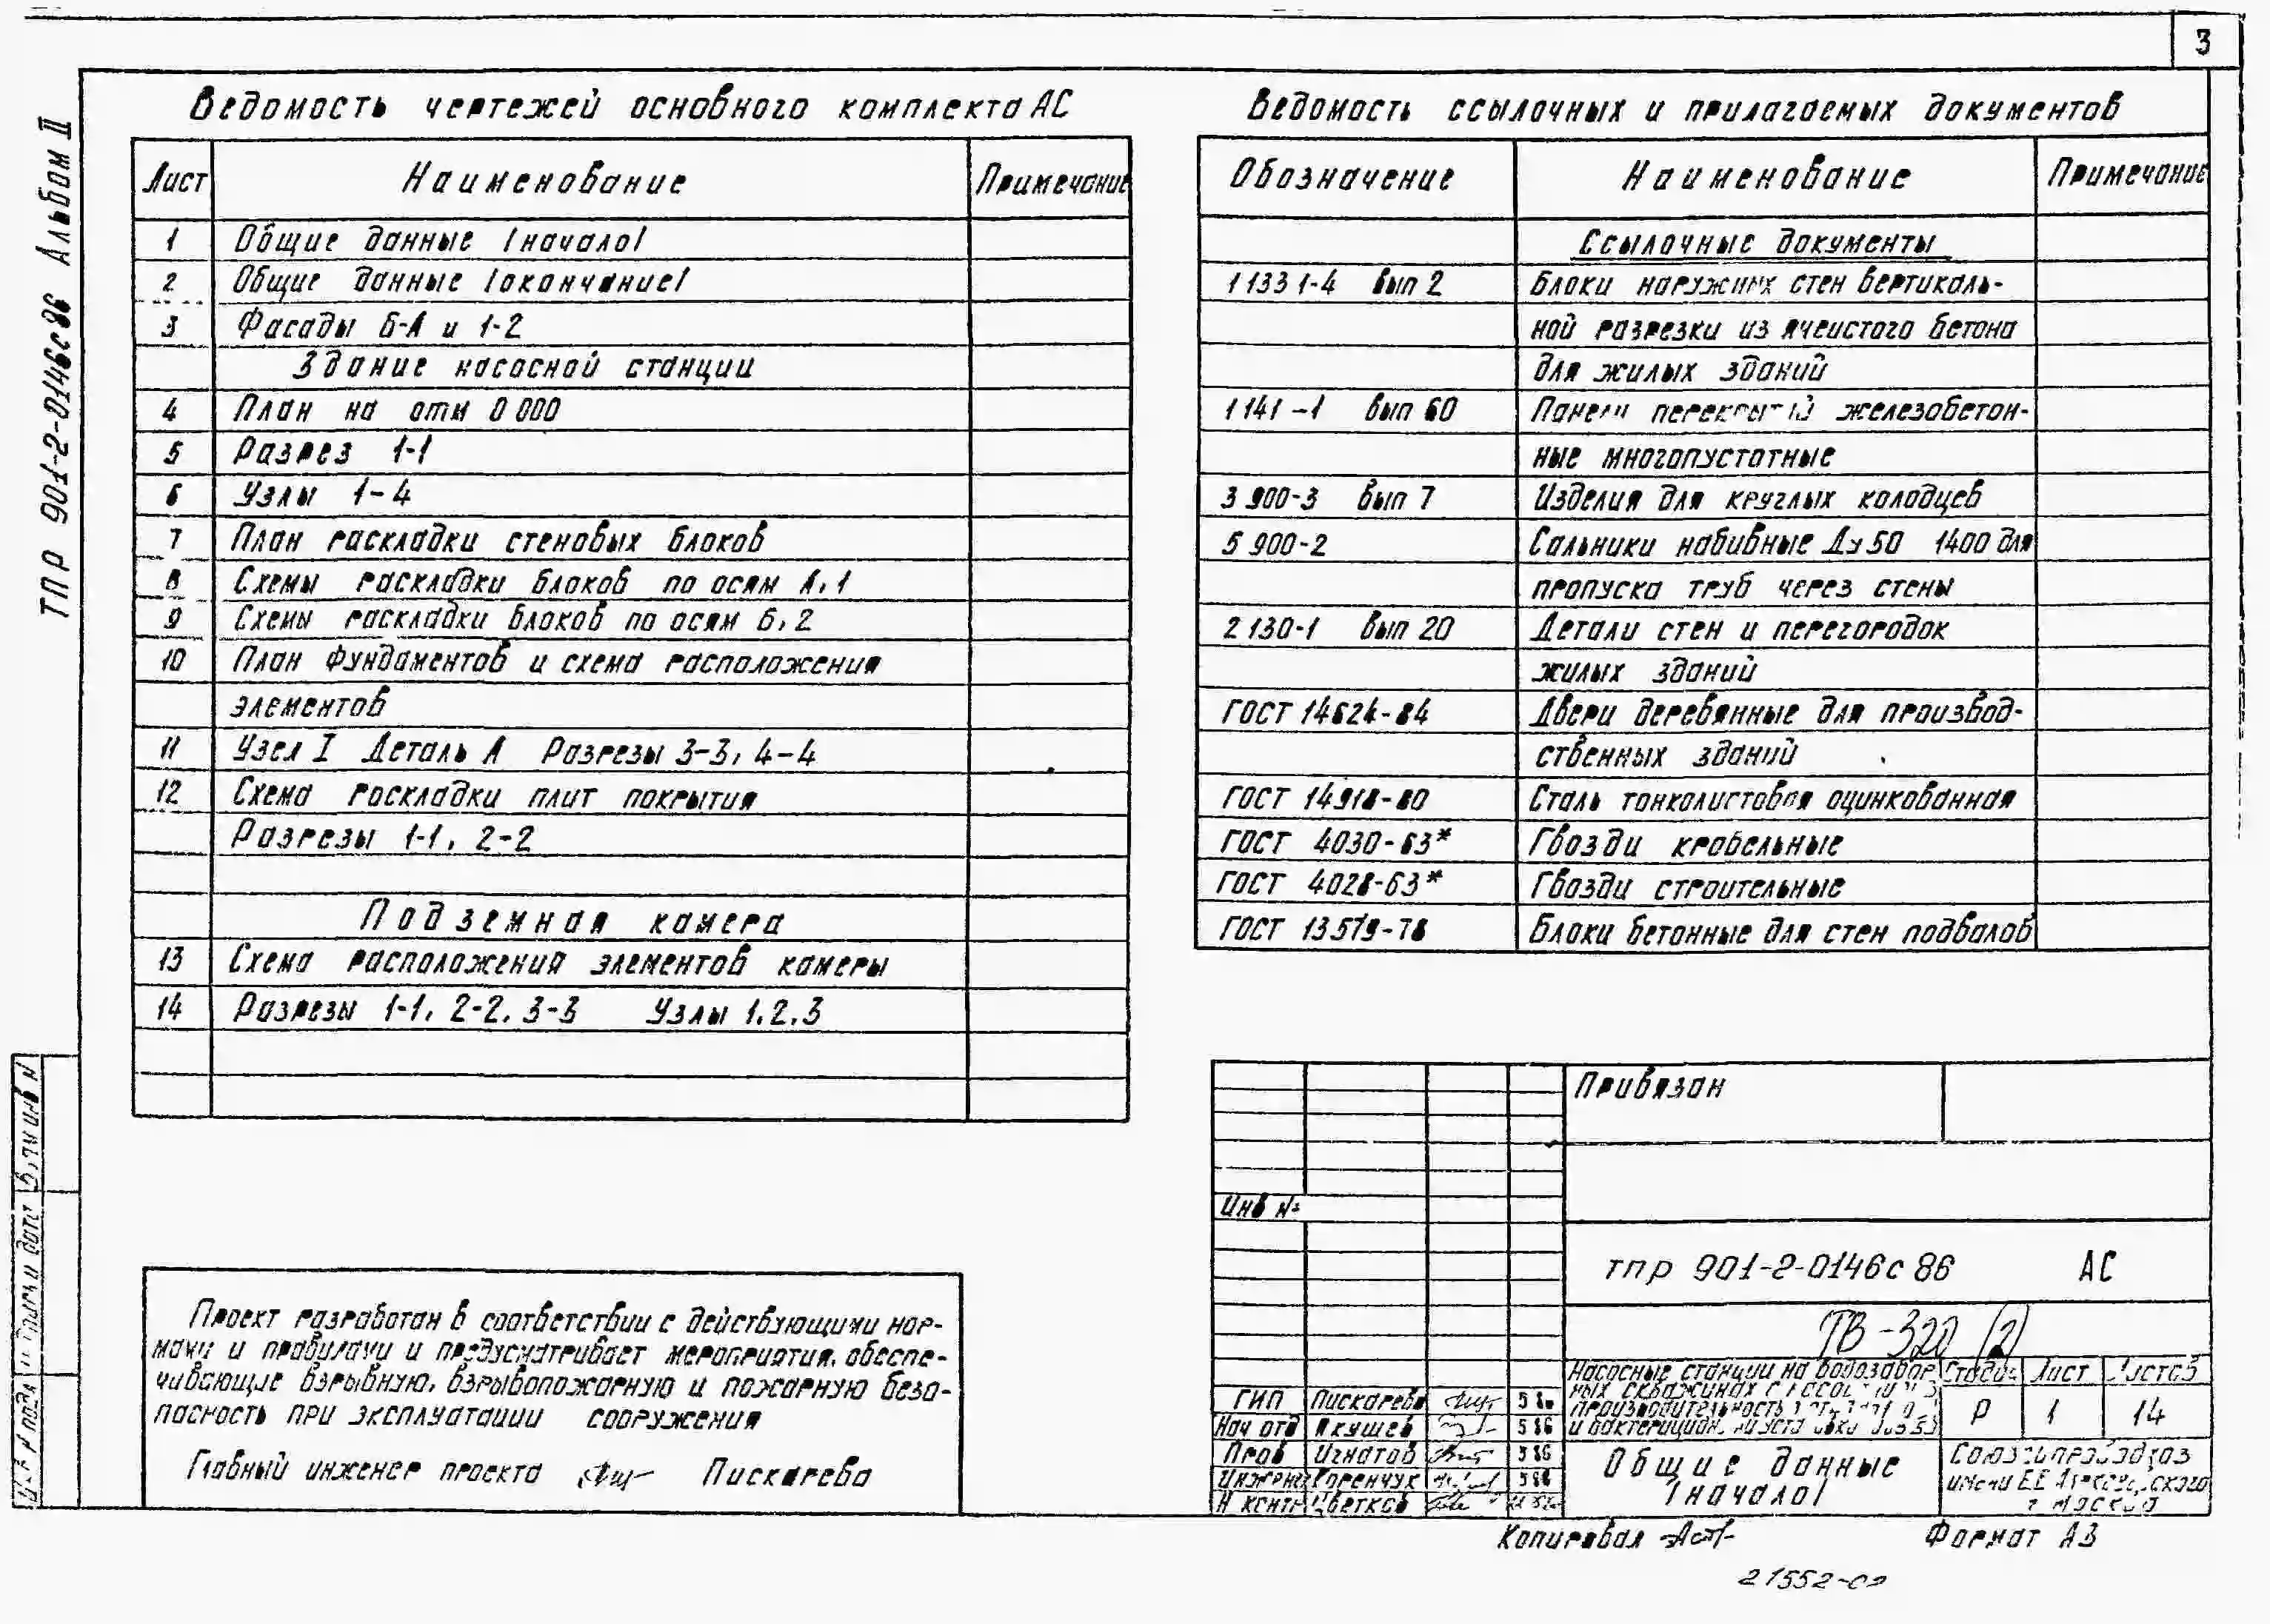 3
ТПР 901-2-0146с86 Альбом II
Ведомость чертежей основного комплекта АС
Лист Наименование Примечание
1 Общие данные (начало)
2 Общие данные (окончание)
3 Фасады Б-А и 1-2
Здание насосной станции
4 План на отм 0 000
5 Разрез 1-1
6 Узлы 1-4
7 План раскладки стеновых блоков
8 Схемы раскладки блоков по осям А, 1
9 Схемы раскладки блоков по осям Б, 2
10 План фундаментов и схема расположения
элементов
11 Узел I Деталь А Разрезы 3-3, 4-4
12 Схема раскладки плит покрытия
Разрезы 1-1, 2-2
Подземная камера
13 Схема расположения элементов камеры
14 Разрезы 1-1, 2-2, 3-3 Узлы 1,2,3
Ведомость ссылочных и прилагаемых документов
Обозначение Наименование Примечание
Ссылочные документы
1 133 1-4 вып 2 Блоки наружных стен вертикаль-
ной разрезки из ячеистого бетона
для жилых зданий
1 141-1 вып 60 Панели перекрытий железобетон-
ные многопустотные
3 900-3 вып 7 Изделия для круглых колодцев
5 900-2 Сальники набивные Ду 50 1400 для
пропуска труб через стены
2 130-1 вып 20 Детали стен и перегородок
жилых зданий
ГОСТ 14624-84 Двери деревянные для производ-
ственных зданий
ГОСТ 14918-80 Сталь тонколистовая оцинкованная
ГОСТ 4030-63* Гвозди кровельные
ГОСТ 4028-63* Гвозди строительные
ГОСТ 13579-78 Блоки бетонные для стен подвалов
Проект разработан в соответствии с действующими нор-
мами и правилами и предусматривает мероприятия, обеспе-
чивающие взрывную, взрывопожарную и пожарную безо-
пасность при эксплуатации сооружения
Главный инженер проекта Пискарева
Привязан
Инв №
тпр 901-2-0146с 86 АС
ТВ-320 (2)
Насосные станции на водозабор
ных скважинах с
производительность
и бактерицидн.
Стадия Лист Листов
Р 1 14
ГИП Пискарева 5 86
Нач отд Якушев 5 86
Пров Игнатов 5 86
Инженер Горенчук 5 86
Н контр Цветков
Общие данные
(начало)
имени Е.Е.
г Москва
Копировал
Формат А3
21552-02